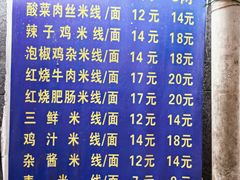 酸菜肉丝米线/面 12元 14元
辣子鸡米线/面 14元 18元
泡椒鸡杂米线/面 14元 18元
红烧牛肉米线/面 17元 20元
红烧肥肠米线/面 17元 20元
三鲜米线/面 12元 14元
鸡汁米线/面 14元 18元
杂酱米线/面 12元 14元